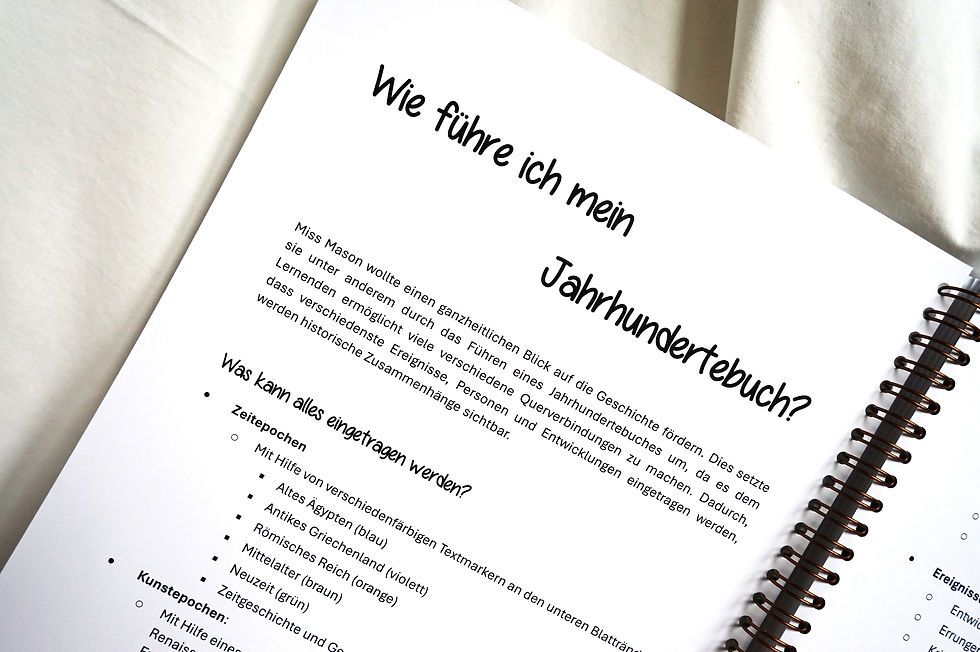 Wie führe ich mein
Jahrhundertebuch?
Miss Mason wollte einen ganzheitlichen Blick auf die Geschichte fördern. Dies setzte
sie unter anderem durch das Führen eines Jahrhundertebuches um, da es dem
Lernenden ermöglicht viele verschiedene Querverbindungen zu machen. Dadurch,
dass verschiedenste Ereignisse, Personen und Entwicklungen eingetragen werden,
werden historische Zusammenhänge sichtbar.
Was kann alles eingetragen werden?
• Zeitepochen
○ Mit Hilfe von verschiedenfärbigen Textmarkern an den unteren
▪ Altes Ägypten (blau)
▪ Antikes Griechenland (violett)
▪ Römisches Reich (orange)
▪ Mittelalter (braun)
▪ Neuzeit (grün)
▪ Zeitgeschichte und
• Kunstepochen:
○ Mit Hilfe